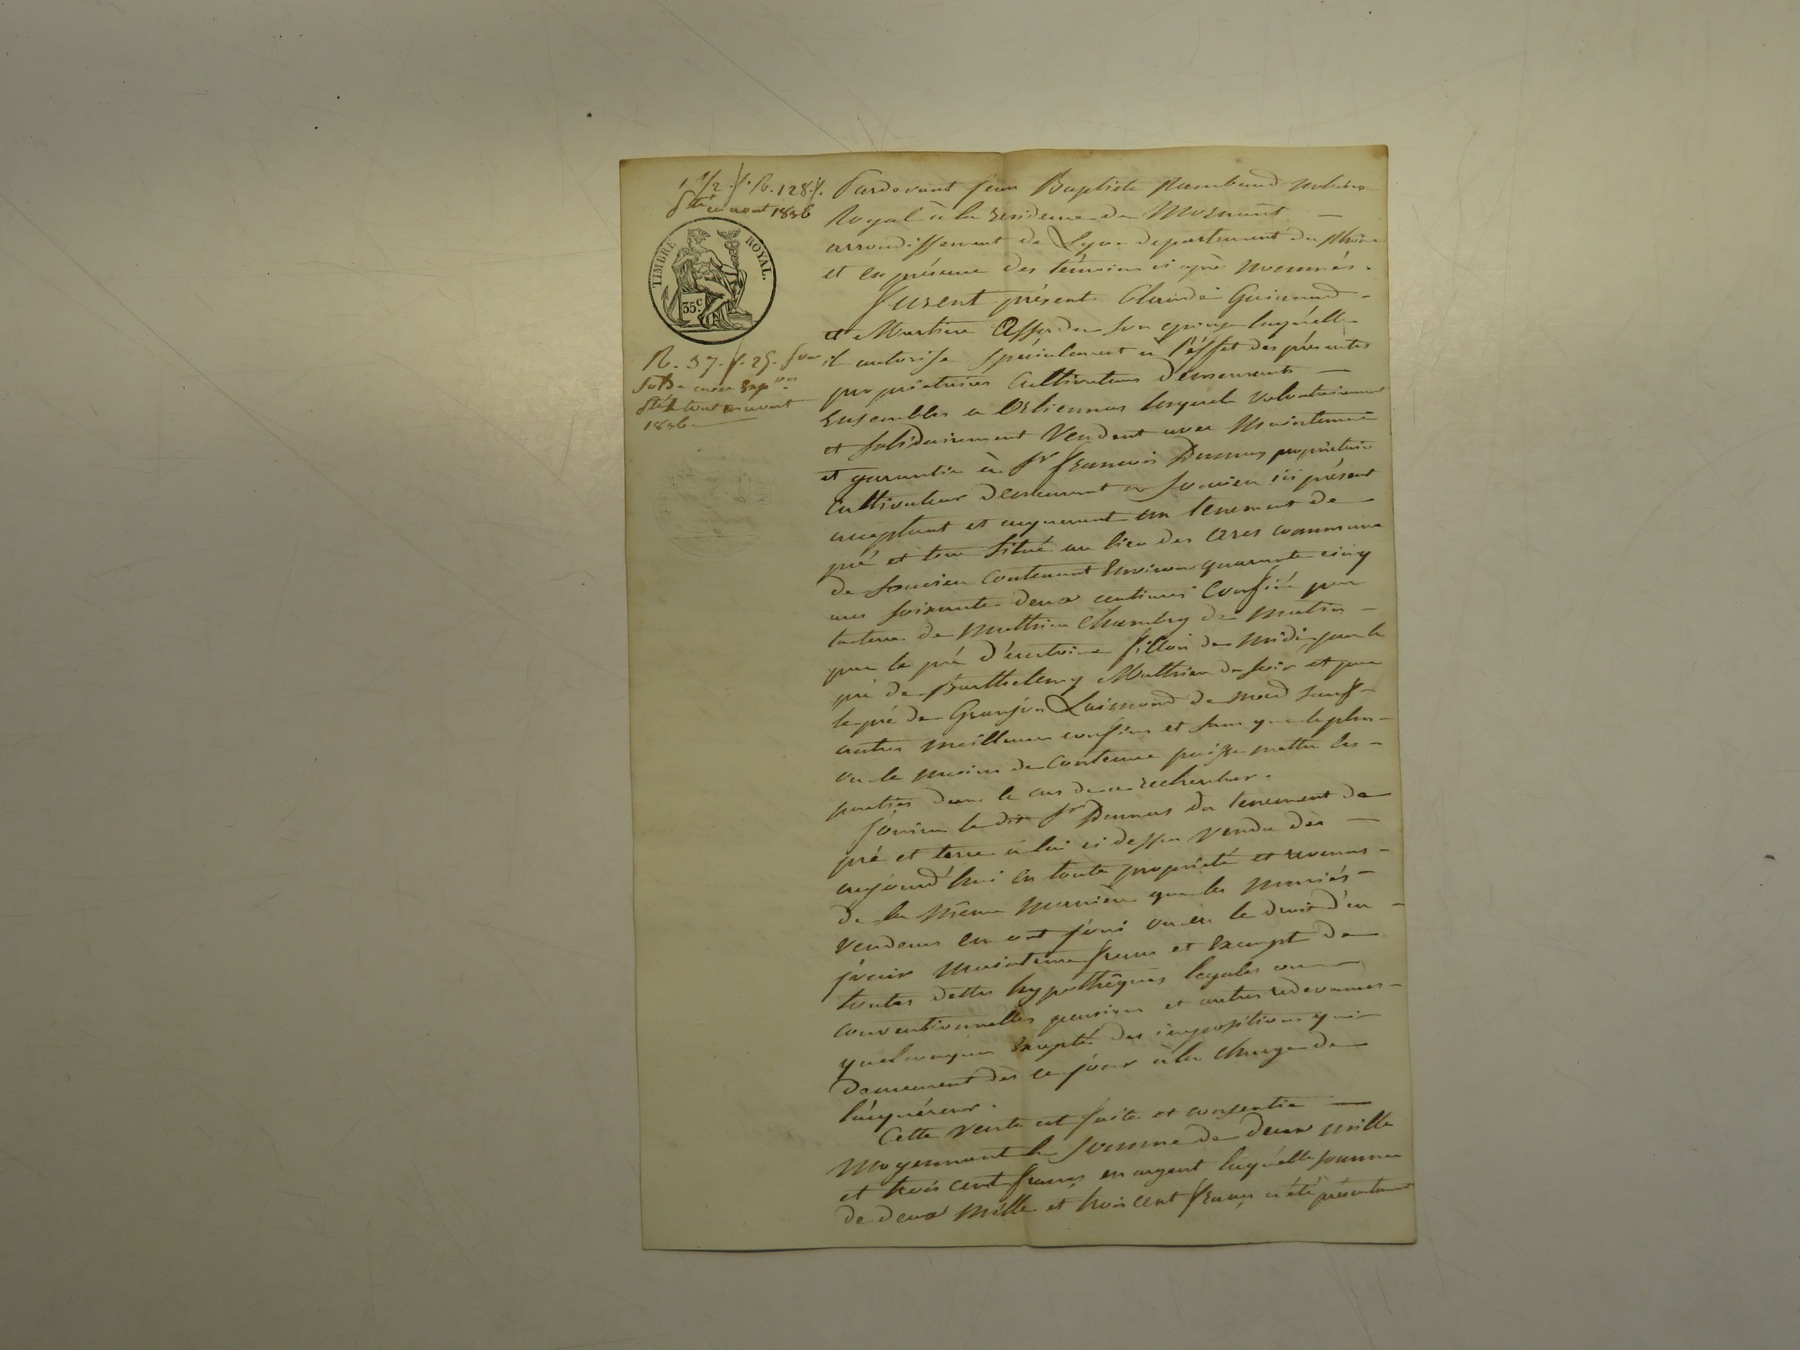 1 1/2 f. R. 128 f.
1836
TIMBRE ROYAL
35c
R. 37. f. 25.
1836
Pardevant Jean Baptiste Rambaud notaire
Royal à la residence de Mornant
arrondissement de Lyon departement du Rhône
et en présence des témoins ci après nommés.
Furent présents Claude Guinand
et son epouse laquelle
il autorise spécialement à l'éffet des présentes
propriétaires cultivateurs demeurants
Ensembles a Orlienas lesquels volontairement
et solidairement Vendent avec Maintenue
et garantie à Sr François propriétaire
Cultivateur demeurant a Soucieu ici présent
acceptant et acquerant un tenement de
pré et terre situé au lieu des commune
de Soucieu contenant Environ quarante cinq
ares soixante deux centiares Confiné par
la terre de Mathieu Chambry de matin
par le pré d'Antoine Fillon de midi par le
pré de Barthelemy Mathieu de soir et par
le pré de de nord sauf
autres meilleurs confins et sans que le plus
ou le moins de contenue puisse mettre les
parties dans le cas de se rechercher.
Jouira le dit Sr du tenement de
pré et terre à lui ci dessus vendu des
aujourd'hui en toute propriété et revenus
de la même manière que les mariés
vendeurs en ont joui ou eu le droit d'en
jouir Maintenu franc et Exempt de
toutes dettes hypothêques legales ou
conventionnelles pensions et autres redevances
quelconques Excepté des impositions qui
demeurent dès ce jour à la charge de
l'acquéreur.
Cette vente est faite et consentie
Moyennant la somme de deux mille
et trois cent francs en argent laquelle somme
de deux mille et trois cent francs a été présentement